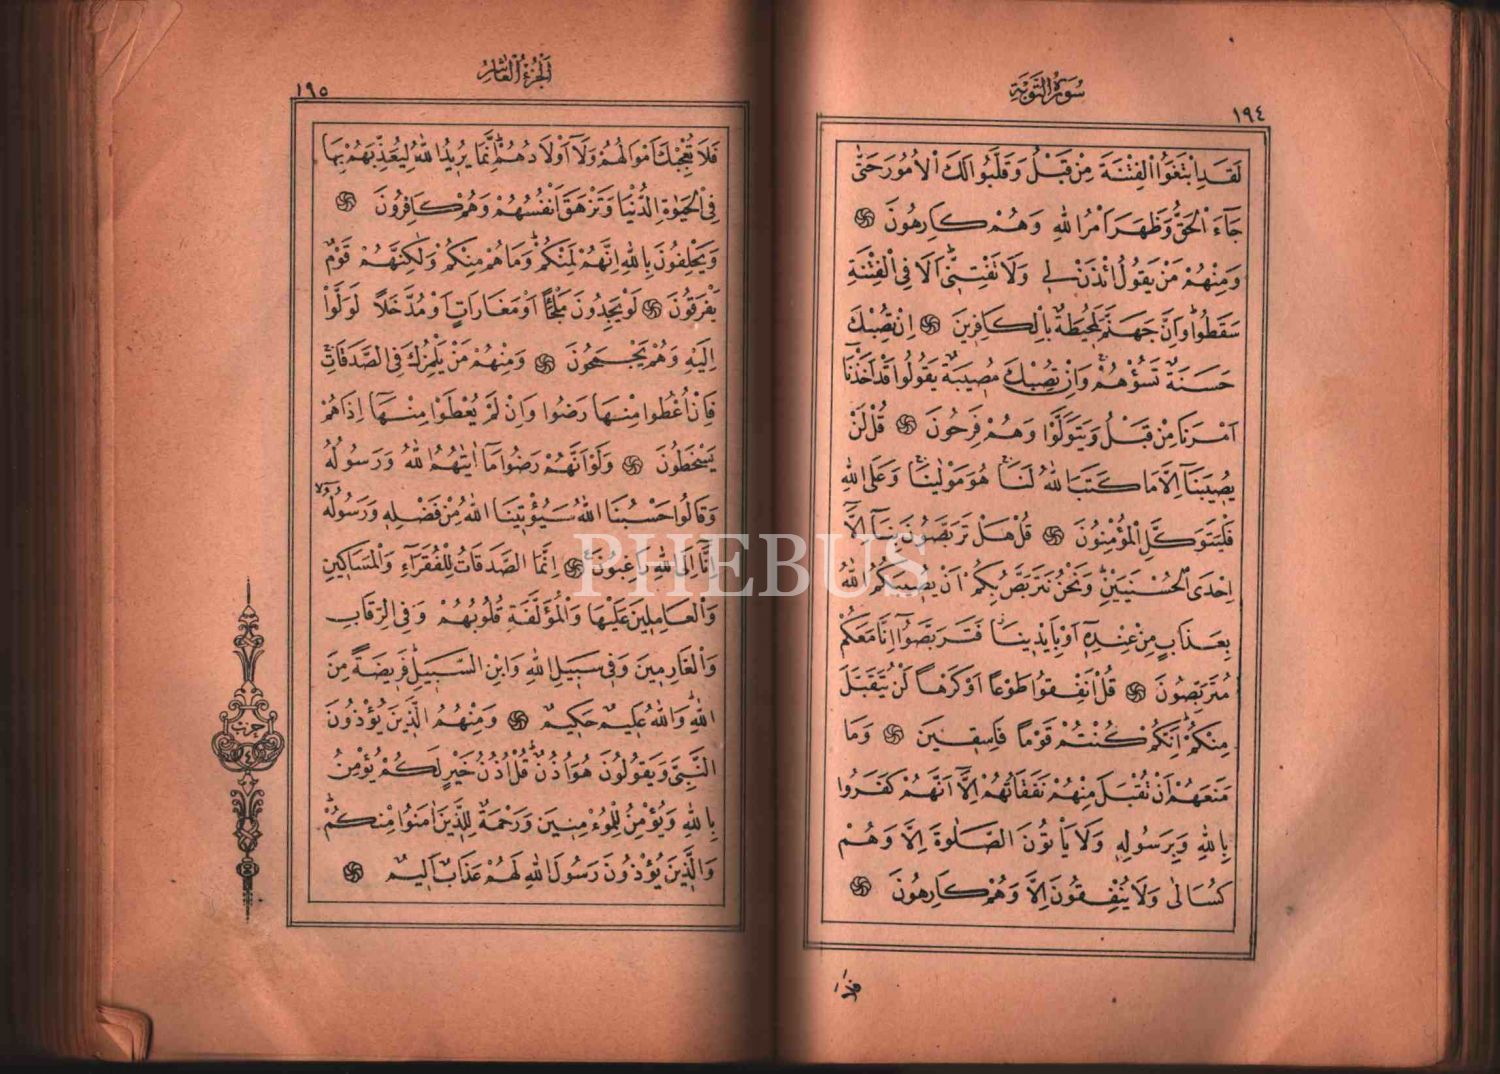 ١٩٤
سُورَةُ التَّوْبَةِ
لَقَدِ ابْتَغَوُا الْفِتْنَةَ مِنْ قَبْلُ وَقَلَّبُوا لَكَ الْأُمُورَ حَتّٰى
جَآءَ الْحَقُّ وَظَهَرَ اَمْرُ اللّٰهِ وَهُمْ كَارِهُونَ
وَمِنْهُمْ مَنْ يَقُولُ ائْذَنْ لِي وَلَا تَفْتِنِّي اَلَا فِي الْفِتْنَةِ
سَقَطُوا وَاِنَّ جَهَنَّمَ لَمُحِيطَةٌ بِالْكَافِرِينَ اِنْ تُصِبْكَ
حَسَنَةٌ تَسُؤْهُمْ وَاِنْ تُصِبْكَ مُصِيبَةٌ يَقُولُوا قَدْ اَخَذْنَا
اَمْرَنَا مِنْ قَبْلُ وَيَتَوَلَّوْا وَهُمْ فَرِحُونَ قُلْ لَنْ
يُصِيبَنَآ اِلَّا مَا كَتَبَ اللّٰهُ لَنَا هُوَ مَوْلٰينَا وَعَلَى اللّٰهِ
فَلْيَتَوَكَّلِ الْمُؤْمِنُونَ قُلْ هَلْ تَرَبَّصُونَ بِنَآ اِلَّآ
اِحْدَى الْحُسْنَيَيْنِ وَنَحْنُ نَتَرَبَّصُ بِكُمْ اَنْ يُصِيبَكُمُ اللّٰهُ
بِعَذَابٍ مِنْ عِنْدِهِ اَوْ بِاَيْدِينَا فَتَرَبَّصُوٓا اِنَّا مَعَكُمْ
مُتَرَبِّصُونَ قُلْ اَنْفِقُوا طَوْعًا اَوْ كَرْهًا لَنْ يُتَقَبَّلَ
مِنْكُمْ اِنَّكُمْ كُنْتُمْ قَوْمًا فَاسِقِينَ وَمَا
مَنَعَهُمْ اَنْ تُقْبَلَ مِنْهُمْ نَفَقَاتُهُمْ اِلَّآ اَنَّهُمْ كَفَرُوا
بِاللّٰهِ وَبِرَسُولِهِ وَلَا يَاْتُونَ الصَّلٰوةَ اِلَّا وَهُمْ
كُسَالٰى وَلَا يُنْفِقُونَ اِلَّا وَهُمْ كَارِهُونَ
فَلَا
١٩٥
اَلْجُزْءُ الْعَاشِرُ
فَلَا تُعْجِبْكَ اَمْوَالُهُمْ وَلَآ اَوْلَادُهُمْ اِنَّمَا يُرِيدُ اللّٰهُ لِيُعَذِّبَهُمْ بِهَا
فِي الْحَيٰوةِ الدُّنْيَا وَتَزْهَقَ اَنْفُسُهُمْ وَهُمْ كَافِرُونَ
وَيَحْلِفُونَ بِاللّٰهِ اِنَّهُمْ لَمِنْكُمْ وَمَا هُمْ مِنْكُمْ وَلٰكِنَّهُمْ قَوْمٌ
يَفْرَقُونَ لَوْ يَجِدُونَ مَلْجَـًٔا اَوْ مَغَارَاتٍ اَوْ مُدَّخَلًا لَوَلَّوْا
اِلَيْهِ وَهُمْ يَجْمَحُونَ وَمِنْهُمْ مَنْ يَلْمِزُكَ فِي الصَّدَقَاتِ
فَاِنْ اُعْطُوا مِنْهَا رَضُوا وَاِنْ لَمْ يُعْطَوْا مِنْهَآ اِذَا هُمْ
يَسْخَطُونَ وَلَوْ اَنَّهُمْ رَضُوا مَآ اٰتٰيهُمُ اللّٰهُ وَرَسُولُهُ
وَقَالُوا حَسْبُنَا اللّٰهُ سَيُؤْتِينَا اللّٰهُ مِنْ فَضْلِهِ وَرَسُولُهُ
اِنَّآ اِلَى اللّٰهِ رَاغِبُونَ اِنَّمَا الصَّدَقَاتُ لِلْفُقَرَآءِ وَالْمَسَاكِينِ
وَالْعَامِلِينَ عَلَيْهَا وَالْمُؤَلَّفَةِ قُلُوبُهُمْ وَفِي الرِّقَابِ
وَالْغَارِمِينَ وَفِي سَبِيلِ اللّٰهِ وَابْنِ السَّبِيلِ فَرِيضَةً مِنَ
اللّٰهِ وَاللّٰهُ عَلِيمٌ حَكِيمٌ وَمِنْهُمُ الَّذِينَ يُؤْذُونَ
النَّبِيَّ وَيَقُولُونَ هُوَ اُذُنٌ قُلْ اُذُنُ خَيْرٍ لَكُمْ يُؤْمِنُ
بِاللّٰهِ وَيُؤْمِنُ لِلْمُؤْمِنِينَ وَرَحْمَةٌ لِلَّذِينَ اٰمَنُوا مِنْكُمْ
وَالَّذِينَ يُؤْذُونَ رَسُولَ اللّٰهِ لَهُمْ عَذَابٌ اَلِيمٌ
حزب
٤
PHEBUS